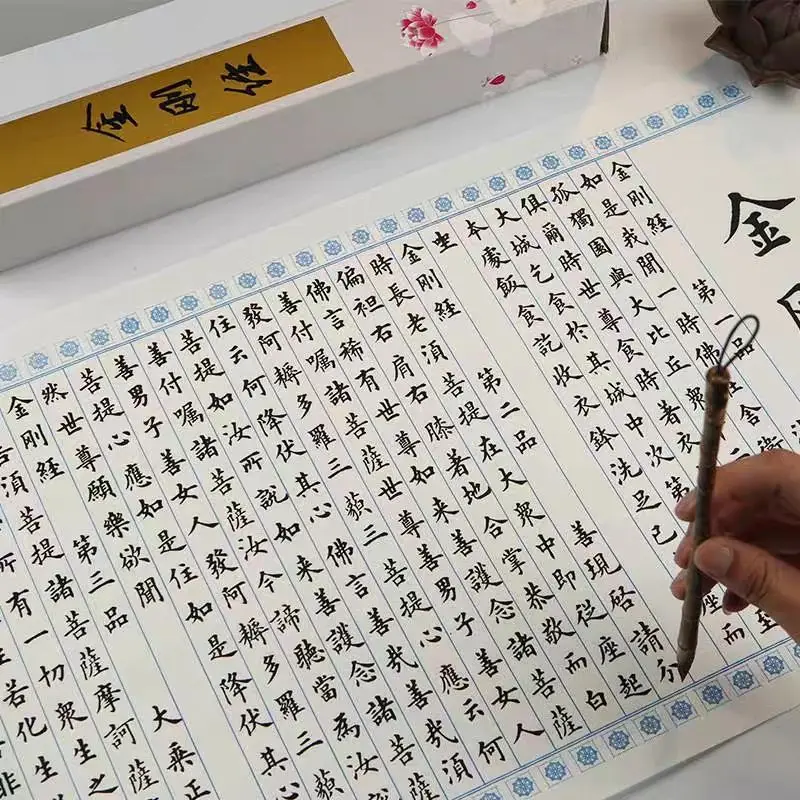 金刚经
金
金剛經 第一品
如是我聞一時佛在舍衛
孤獨園與大比丘眾
俱爾時世尊食時著衣
大城乞食於其城中次第
本處飯食訖收衣鉢洗足已座而
坐
金剛經 第二品 善現啓請分
時長老須菩提在大眾中即從座起
偏袒右肩右膝著地合掌恭敬而白
佛言稀有世尊如來善護念諸菩薩
善付囑諸菩薩世尊善男子善女人
發阿耨多羅三藐三菩提心應云何
住云何降伏其心佛言善哉善哉須
菩提如汝所說如來善護念諸菩
善付囑諸菩薩汝今諦聽當為汝
善男子善女人發阿耨多羅三藐
菩提心應如是住如是降伏其心
然世尊願樂欲聞
金剛經 第三品 大乘正
須菩提諸菩薩摩訶薩
所有一切眾生之
若化生
非